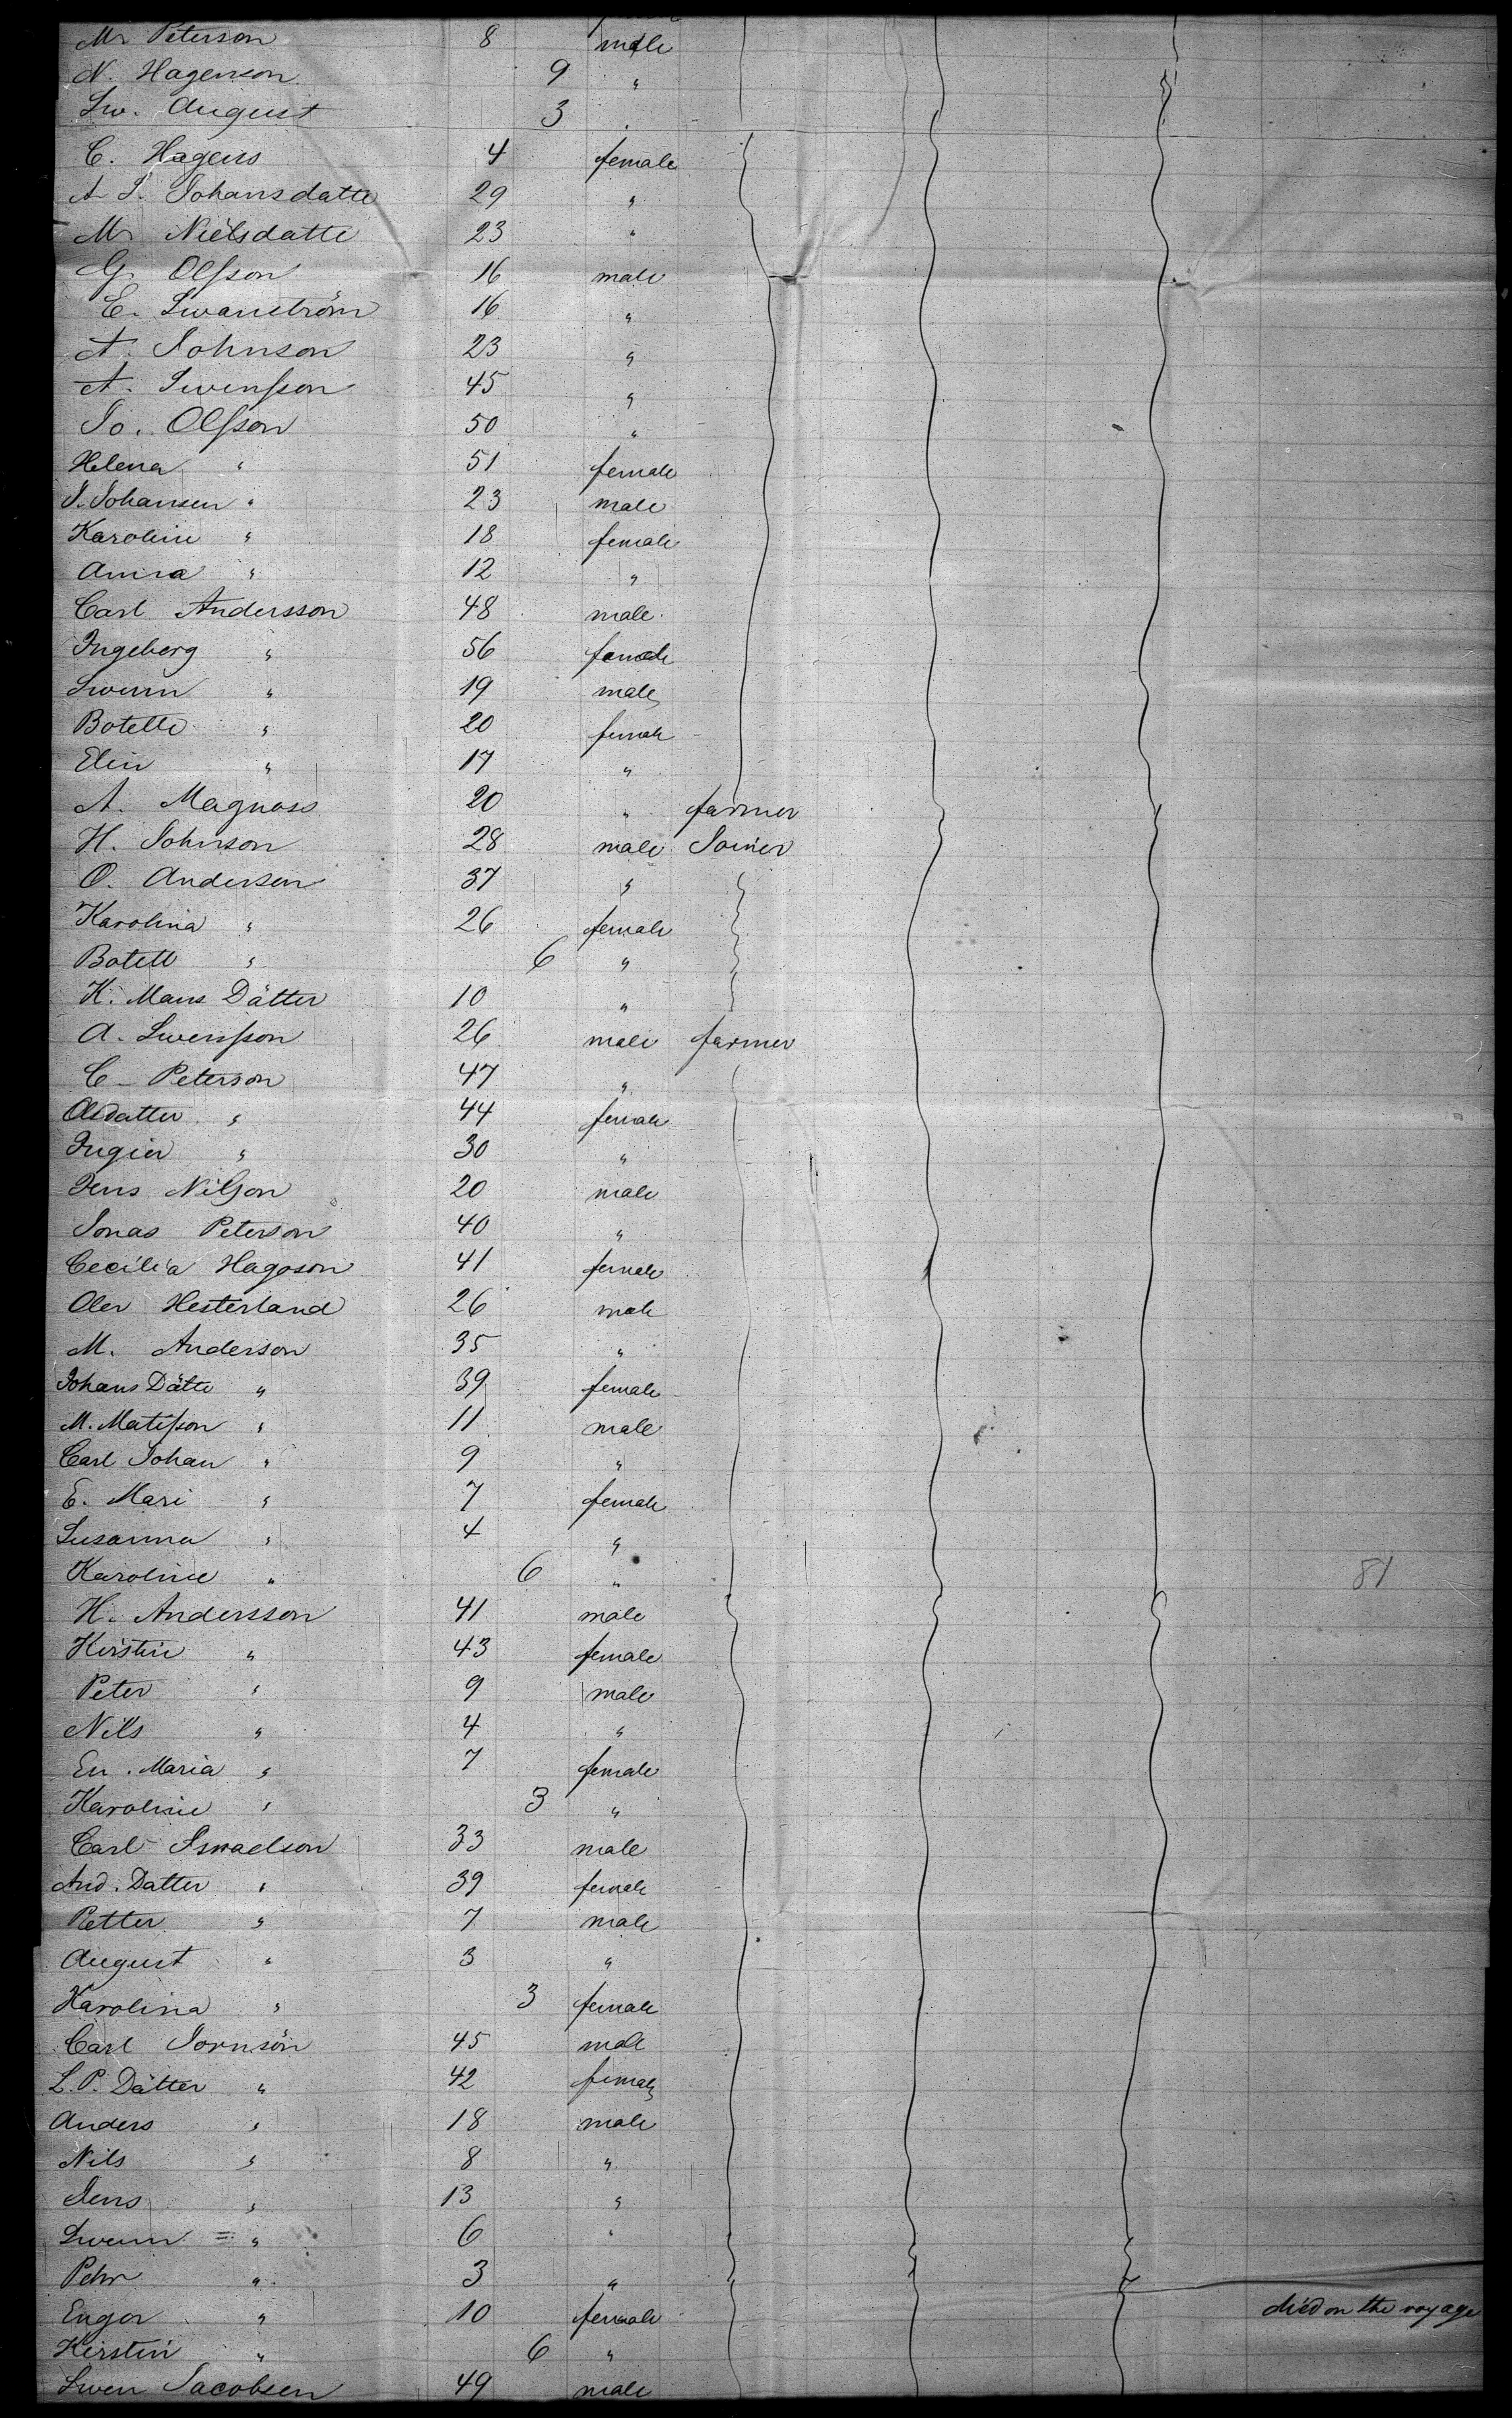 M. Peterson 8 male
N. Hagenson 9 "
Sw. August 3 "
C. Hagens 4 female
A. I. Johansdatte 29 "
M. Nielsdatte 23 "
G. Olsson 16 male
E. Swanström 16 "
A. Johnson 23 "
A. Swensson 45 "
Jo. Olsson 50 "
Helena " 51 female
J. Johansen " 23 male
Karoline " 18 female
Anna " 12 "
Carl Andersson 48 male
Ingeborg " 56 female
Swenn " 19 male
Botelle " 20 female
Elin " 17 "
A. Magnass 20 " farmer
H. Johnson 28 male Joiner
O. Andersen 37 "
Karolina " 26 female
Botell " 6 "
K. Mans Dätter 10 "
A. Swensson 26 male farmer
C. Peterson 47 "
Olsdatter " 44 female
Ingier " 30 "
Jens Nilson 20 male
Jonas Peterson 40 "
Cecilia Hagoson 41 female
Oler Hesterland 26 male
M. Anderson 35 "
Johans Dätte " 39 female
M. Matisson " 11 male
Carl Johan " 9 "
E. Mari " 7 female
Susanna " 4 "
Karoline " 6 " 81
H. Andersson 41 male
Kirstin " 43 female
Peter " 9 male
Nils " 4 "
En. Maria " 7 female
Karoline " 3 "
Carl Ismaelson 33 male
And. Datter " 39 female
Petter " 7 male
August " 3 "
Karolina " 3 female
Carl Jornsön 45 male
L. P. Dätter " 42 female
Anders " 18 male
Nils " 8 "
Jens " 13 "
Swenn = " 6 "
Pehr " 3 "
Engor " 10 female died on the voyage
Kirstin " 6 "
Swen Jacobsen 49 male